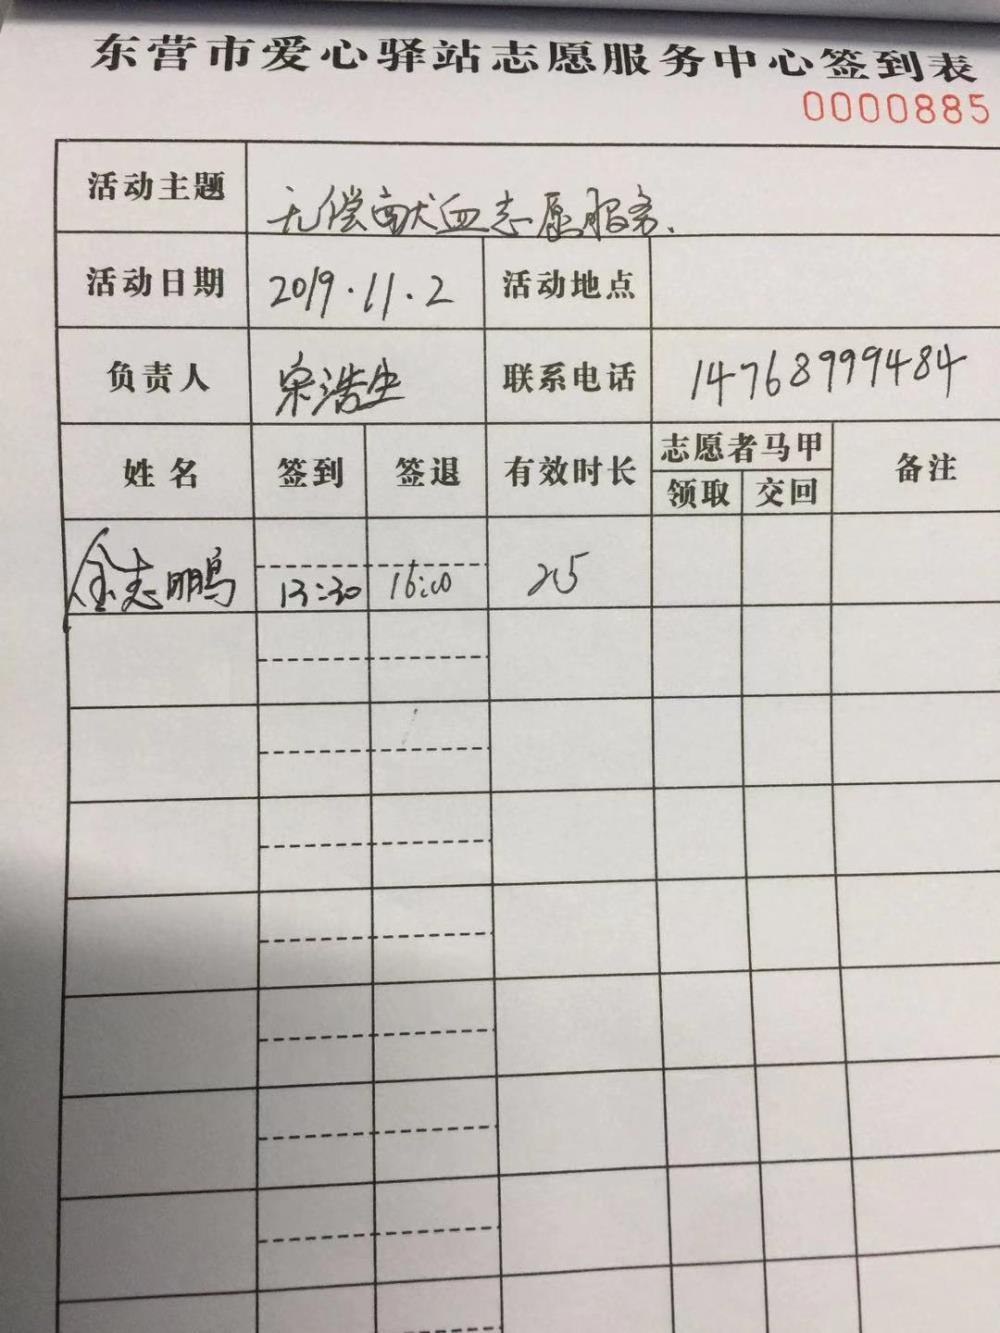 东营市爱心驿站志愿服务中心签到表
0000885
活动主题 无偿献血志愿服务.
活动日期 2019.11.2 活动地点
负责人 宋浩生 联系电话 14768999484
姓名 签到 签退 有效时长 志愿者马甲 备注
领取 交回
金志鹏 13:30 16:00 2.5